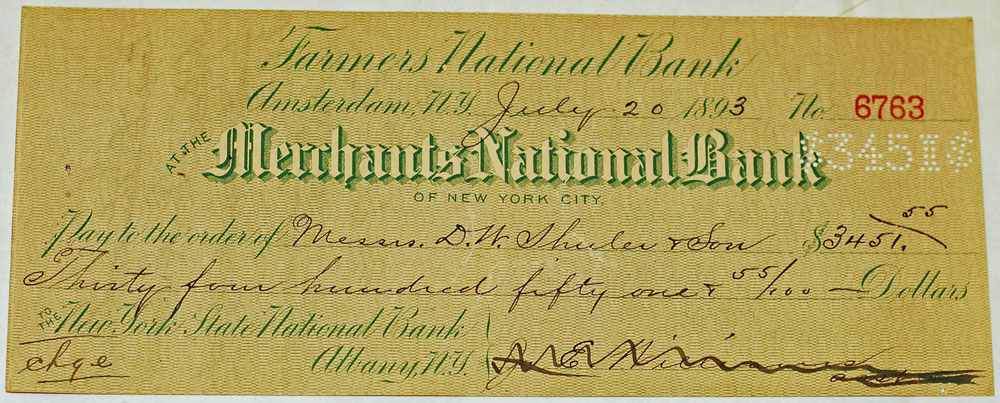 Farmers National Bank
Amsterdam, N.Y. July 20 1893 No. 6763
AT THE Merchants National Bank $3451$
OF NEW YORK CITY.
Pay to the order of Messrs. D. W. Shuler & Son $3451.55
Thirty four hundred fifty one & 55/100 — Dollars
TO THE New York State National Bank
chge Albany, N.Y.